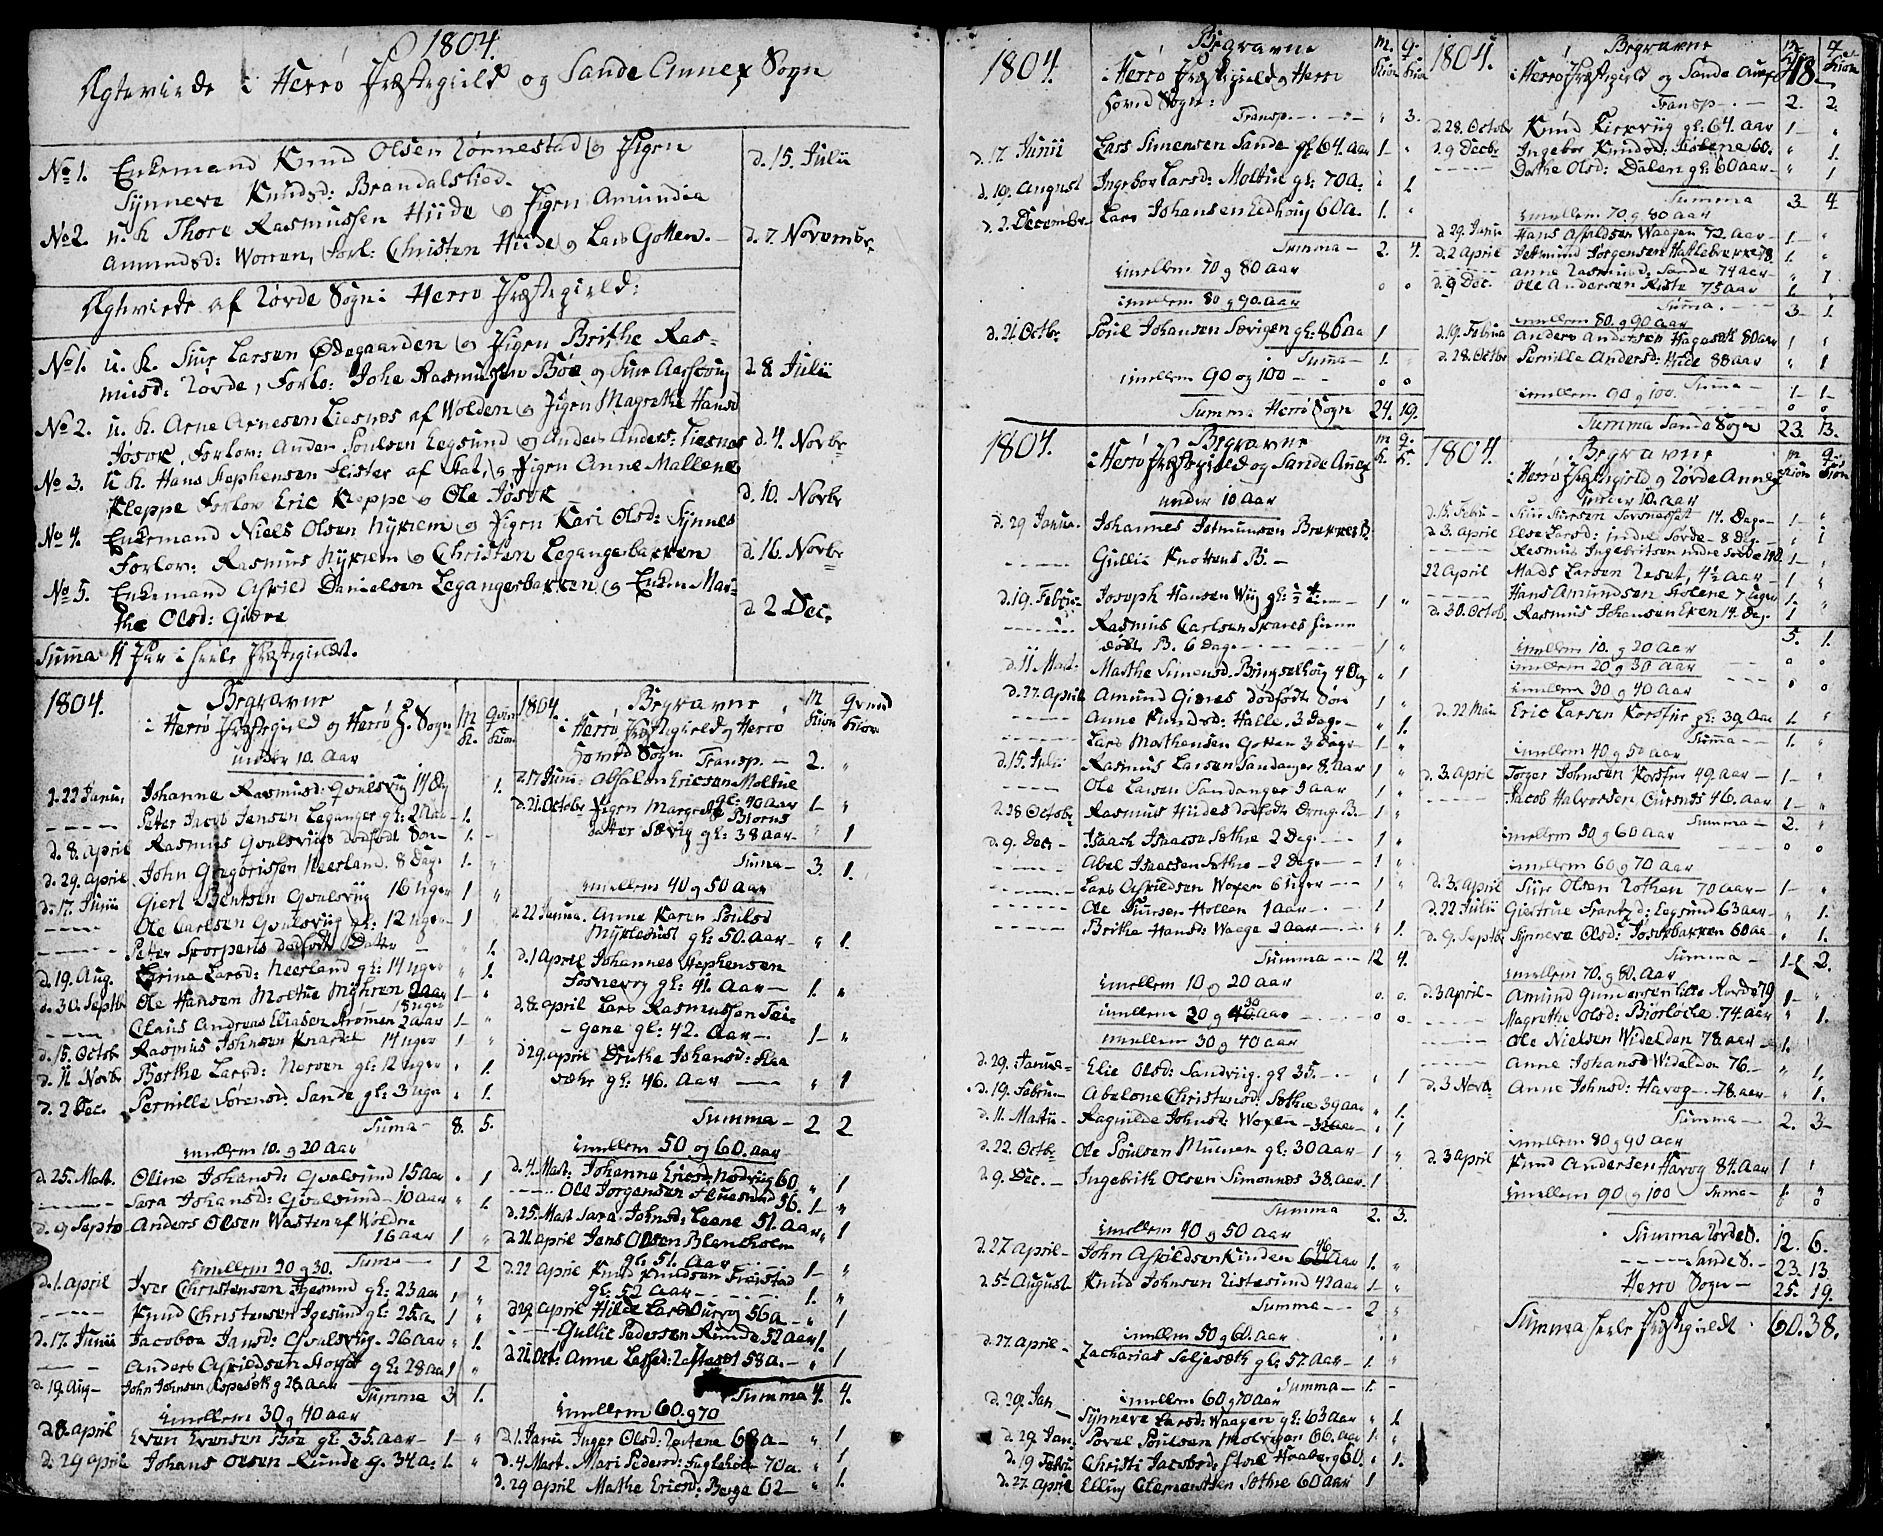 1804.
Ægteviede i Herrø Præstegield og Sande Annex Sogn
No 1. Enkemand Knud Olsen Rønnestad og Pigen d. 15. Julii
Synneve Knudsd: Brandalslied.
No 2. u. K Thore Rasmussen Hiide og Pigen Amundia d. 7. Novembr
Amundsd: Worren, Forl: Christen Hiide og Lars Gotten.
Ægteviede af Rovde Sogn i Herrø Præstegield:
No 1. u. K. Siur Larsen Ødegaarden og Pigen Brithe Ras- d 8. Julii
musd: Rovde, Forlo: Johe Rasmussen Böe og Siur Aarsvog
No 2. u. K. Arne Arnesen Liesnæs af Wolden og Pigen Magrethe Hansd d. 4. Novbr
Jøsok, Forlov: Anders Poulsen Eegsund og Anders Anders: Liesnæs
No 3. u K. Hans Stephensen Lister af Stat, og Pigen Anne Mallene d. 10. Novbr
Kleppe Forlov Eric Kleppe og Ole Jøsok
No 4. Enkemand Niels Olsen Nykiem og Pigen Kari Olsd: Synnes d. 16. Novbr
Forlov: Rasmus Nykiem og Christen Legangerbakken
No 5. Enkemand Askild Danielsen Legangerbakken og Enken Mar- d 2 Dec.
the Olsd: Giære
Summa 11 Par i heele Præstegieldet.
1804. Begravne
i Herrø Præstegield og Herrø H. Sogn M K. Qvin Kiön
under 10. Aar
d. 22 Janu. Johanne Rasmusd: Qvalsvig 14 Dg 1.
Peter Jacob Jensen Leganger gl: 2 Aar 1.
d. 8. April Rasmus Qvalsvigs dødfødt Søn 1.
d. 29. April John Gregorissen Neerland. 8 Dage 1.
d. 17. Junii Giert Bentsen Qvalsviig 16 Uger 1
Ole Carlsen Qvalsviig gl: 12 Uger 1
Peter Skorpens dødfødt Datter 1.
d. 19. Aug. Karina Larsd: Neerland gl: 14 Uger 1.
d. 30. Septbr Ole Hansen Moltue Myhren 18 Uger 1
Claus Andreas Eliasen Strømen 2 Aar 1
d. 15. Octob Rasmus Johnsen Knardal 14 Uger 1
d. 11 Novbr Borthe Larsd: Nerøen gl: 12 Uger 1.
d. 2 Dec. Pernille Sørensd: Sande gl: 3 Ugr 1.
Summa 8. 5.
imellem 10. og 20 Aar
d. 25. Mart. Oline Johansd: Qvalsund 15 Aar 1
Sara Johansd: Qvalsund 10 Aar 1
d. 9 Septbr Anders Olsen Wasten af Wolden
16 Aar 1
Suma 1 2
imellem 20 og 30.
d. 1. April Iver Christensen Igesund gl: 23 Aar 1
Knud Christensen Igesund gl: 25 a. 1
d. 17. Junii Jacobea Jansd: Qvalsviig. 26 Aar 1.
Anders Askildsen Stoplet gl: 28 Aar 1
d. 19. Aug John Johnsen Ropasæth g 28. Aar
Summa 3 1.
imellem 30 og 40 Aar
d. 8. April Even Evensen Böe gl: 35. Aar 1
d. 29 April Johans Olsen Runde g. 34 a: 1.
1804. Begravne
i Herrø Præstegield og Herrø Hoved Sogn. M Kiön Qvind Kiön
Transp. 2.
d. 17 Junii Absalon Ericsen Moltue
gl: 40 Aar 1
d. 21. Octobr Pigen Margrethe Biørns
datter Sævig gl: 38 Aar 1
Suma 3. 1.
imellem 40 og 50 Aar
d. 22 Janua. Anne Karen Poulsd
Myklebust gl: 50. Aar 1.
d. 1 April Johannes Stephensen
Fosnevog gl: 41. Aar 1.
d. 8. April Lars Rasmussen Tei-
gene gl: 42. Aar 1
d. 29. April Druthe Johansd: Flaa
sæhr gl: 46. Aar 1
Summa 2 2
imellem 50 og 60. Aar
d. 4. Mart: Johanna Ericsd: Nordviig 60 1
Ole Jørgensen Fluesund 56. 1
d. 25. Mart Sara Johnsd: Leene 51. Aar 1
d. 21 April Jens Olsen Blankholm
gl: 51. Aar 1
d. 22 April Knud Knudsen Freistad
gl: 52 Aar 1.
d. 29 April Hilde Larsd Durvog 56 a 1
Gullic Pedersen Runde 52 Aar 1.
d. 21. Oct: Anne Larsd: Røstad 58 a. 1
Summa 4. 4.
imellem 60. og 70
d. 1. Janu Inger Olsd: Røstene 68 a 1
d. 4. Mart. Mari Pedersd: Fugleholt 70 a. 1
d. 29 April Mathe Ericsd: Berge 62 1.
1804. Begravne
i Herrø Præstegield og Herrø
Hoved Sogn: M. Kiön Q. Kiön
Transp. 3.
d. 17. Junii Lars Simensen Sande gl 64. Aar 1
d. 19. August Ingebor Larsd: Moltue gl: 70 A: 1.
d. 2. December Lars Johansen Eedhoug 60 a. 1.
Summa 2. 4.
imellem 70 og 80 Aar
0 0
imellem 80 og 90. Aar
d. 21. Octbr. Poul Johansen Sævigen gl: 86 Aa 1
Suma 1.
imellem 90 og 100 0 0
Summa Herrø Sogn 24. 19.
1804. Begravne
i Herrø Præstegield og Sande Anex M K. Q. K.
under 10 Aar
d. 29 Janua. Johannes Jetmundsen Brekkes B.
Gullic Knottens B.
d. 19. Februa Joseph Hansen Wiig gl: 1
Rasmus Carlsen Skares hiem
døbt B. 6 Dage 1
d. 11 Mart. Marthe Simensd: Bringselhoug 4 Dg 1
d. 27. April Amund Giærøs dødfødte Søn 1
Anne Knudsd: Halle, 3 Dage 1.
Lars Mathensen Gotten 3 Dage 1
d. 15. Julii Rasmus Larsen Sandanger 8. Aar 1
Ole Larsen Sandanger 3 Aar 1
d. 28 Octobr Rasmus Hiides dødfødte Dreng B. 1
d. 9. Dec Isaach Isaacsen Sæthre 2 Dage 1
Abel Isaacsen Sæthre 2 Dage 1
Lars Askildsen Woxen 6 Uger 1
Ole Siursen Hollen 1 Aar 1
Brithe Hansd: Waage 2 Aar 1
Summa 12 4.
imellem 10 og 20 Aar
0. 0.
imellem 20 og 30 Aar 0 0.
imellem 30 og 40 Aar
d. 29. Janua Elie Olsd: Sandviig. gl 35. 1
d. 19. Februa Abelone Christensd: Sæthre 39 Aar 1.
d. 11. Martii Ragnilde Johnsd: Woxen 32 Aar 1
d. 22. Octbr Ole Poulsen Mueness gl: 30 Aar 1
d. 9. Dec. Ingebrith Olsen Simonnæs 38. Aar 1
Summa 2. 3.
imellem 40 og 50 Aar
d. 27. April John Askildsen Kinden 46 Aar 1.
d. 5t August Knud Johnsen Ristesund 42 Aar 1
Summa 2
imellem 50 og 60. Aar
d. 27. April Zacharias Seljesæth gl: 57. Aar 1.
Summa 1.
imellem 60 og 70 Aar
d. 29. Jan Synneve Larsd: Waagen gl: 63 Aar 1.
d. 29. Jan. Povel Poulsen Molvigen 66. Aar 1.
d. 19 Febru Christi Jacobsd: Store Haaberg 60. 1.
d. 27. April Elling Clemetsen Sæthre 60 Aar 1
1804. Begravne 48.
i Herrø Præstegield og Sande Anex M Kiön Q Kiön
Transp. 2. 2.
d. 28. Octobr Knud Kirkviig gl: 64. Aar 1
d. 9 Decbr Ingebor Knudsd: Stolene 60. 1.
Dorthe Olsd: Dalen gl: 60 Aar 1
Summa 3 4.
imellem 70 og 80 Aar
d. 29. Janu Hans Askildsen Waagen 72. Aar 1
d. 2 April Jetmund Jørgensen Hatlebrekke 78. 1.
Anne Rasmusd: Sande 74 Aar 1
d. 9 Dec. Ole Andersen Riste 75 Aar 1.
Summa. 3 1.
imellem 80. og 90 Aar
d. 19. Februa Anders Andersen Hagasæth 80 Aar 1
d. 28. Octbr Pernille Andersd: Hide 88 Aar 1
Suma 1 1
imellem 90 og 100. 0 0
Summa Sande Sogn 23. 13.
1804. Begravne
i Herrø Præstegield og Rovde Annex M Kiön Q Kiön
under 10. Aar
d. 15. Febru Siur Siursen Sørsnesset 14. Dage 1
d. 3. April Else Larsd: indre Rovde 8 Dag 1
Rasmus Ingebritsen indre Rovde 14 D.
22 April Mads Larsen Reset, 4½ Aar 1
Hans Amundsen Stølene 7 Uger 1.
d. 30. Octob. Rasmus Johansen Eken 14. Dag 1
5. 1.
imellem 10. og 20 Aar 0 0
imellem 20 og 30 Aar 0
imellem 30 og 40 Aar
d. 22 Maii Eric Larsen Korsfur gl: 39 Aar 1.
Summa 1.
imellem 40 og 50 Aar
d. 3. April Torger Johnsen Korsfur 49. Aar 1
Jacob Halvorsen Aursnes 46. Aar 1
Summa 2.
imellem 50 og 60 Aar 0 0
imellem 60 og 70 Aar
d. 3. April Siur Olsen Rothen 70 Aar 1
d. 22 Julii Giertrue Frantzd: Eegsund 63 Aar 1.
d. 9. Septbr Synneve Olsd: Jøsokbakken 60 Aa 1.
Summa 1 2.
imellem 70. og 80. Aar
d. 3 April Amund Gundersen lille Rovde 79 1
Magrethe Olsd: Biørløche. 74 Aar 1.
Ole Nielsen Widelden 78. Aar 1.
Anne Johansd Widelden 76. 1.
d. 3 Novbr Anne Johnsd: Havog 78. Aar 1.
Summa 2. 3
imellem 80 og 90 Aar
d. 3 April Knud Andersen Havog 84. Aar 1
Suma 1.
imellem 90 og 100 0 0
Summa Rovde S. 12. 6.
Sande S. 23. 13
Herrø Sogn 25. 19.
Summa heele Præstegieldt 60. 38.